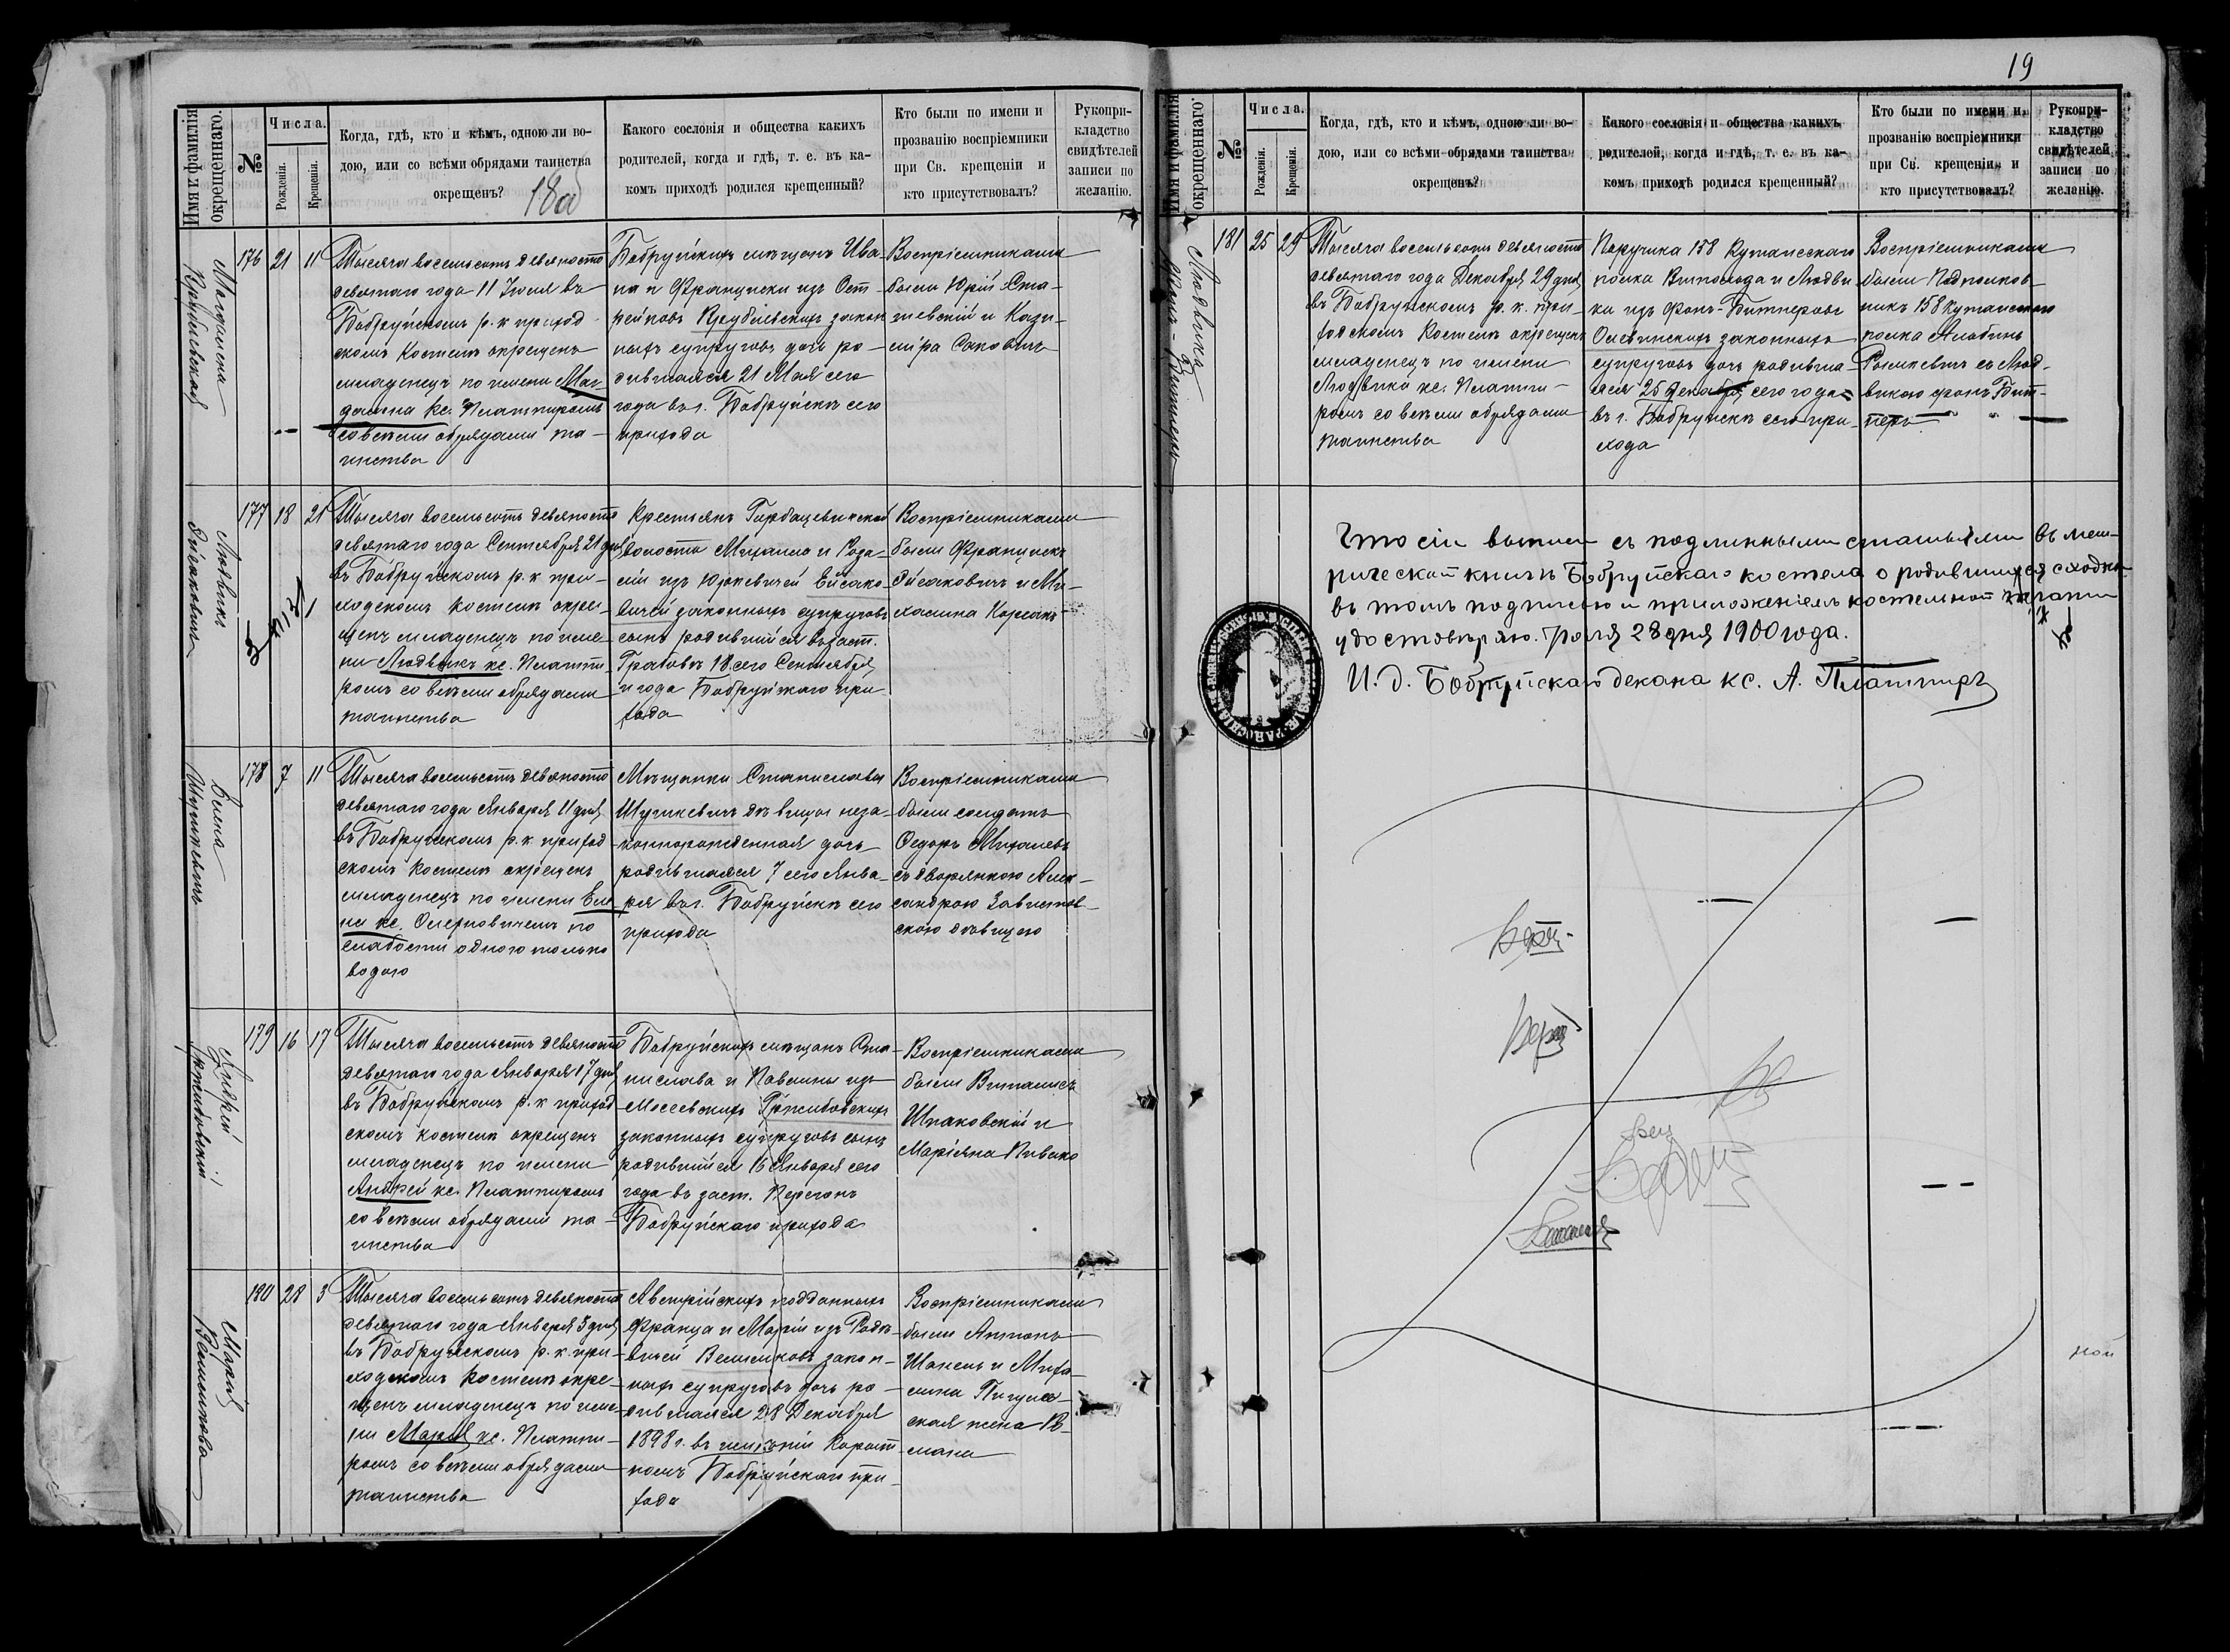 19
Имя и фамилія окрещеннаго.
№
Числа.
Рожденія.
Крещенія.
Когда, гдѣ, кто и кѣмъ, одною ли во-
дою, или со всѣми обрядами таинства
окрещенъ?
18об
Какого сословія и общества какихъ
родителей, когда и гдѣ, т. е. въ ка-
комъ приходѣ родился крещенный?
Кто были по имени и
прозванію воспріемники
при Св. крещеніи и
кто присутствовалъ?
Рукопри-
кладство
свидѣтелей
записи по
желанію.
Магдалена
176 21 11
Тысяча восемьсотъ девяносто
девятаго года 11 Іюля въ
Бобруйскомъ р. к приход
скомъ костелѣ окрещенъ
младенецъ по имени Маг-
далина кс. Платпиромъ
со всѣми обрядами та-
инства
Бобруйскихъ мѣщанъ Ива-
на и Франциски изъ
законныхъ супруговъ дочь ро-
дившаяся 21 Мая сего
года въ г. Бобруйскѣ сего
прихода
Воспріемниками
были Юрій Ста-
шевскій и Кази-
міра Саковичъ
Людвикъ
Эйсаковичъ
177 18 21
Тысяча восемьсотъ девяносто
девятаго года Сентября 21 дня
въ Бобруйскомъ р. к при-
ходскомъ костелѣ окре-
щенъ младенецъ по име-
ни Людвикъ кс. Платпи-
ромъ со всѣми обрядами
таинства
Крестьянъ Горбацевичской
волости Михаила и Роза-
ліи изъ Юркевичей Ейсако-
вичей законныхъ супруговъ
сынъ родившійся въ заст.
Грабовъ 18 сего Сентября
и года Бобруйскаго при
хода
Воспріемниками
были Францискъ
Эйсаковичъ и Ми-
халина Корсакъ
Елена
178 7 11
Тысяча восемьсотъ девяносто
девятаго года Января 11 дня
въ Бобруйскомъ р. к. приход
скомъ костелѣ окрещенъ
младенецъ по имени Еле-
на кс. Олехновичемъ по
слабости одною только
водою
Мѣщанки Станиславы
дѣвицы неза-
коннорожденная дочь
родившаяся 7 сего Янва-
ря въ г. Бобруйскѣ сего
прихода
Воспріемниками
были солдатъ
Ѳедоръ Михалевъ
съ дворянкою Алек-
сандрою Завистов-
скою дѣвицею
Андрей
179 16 17
Тысяча восемьсотъ девяносто
девятаго года Января 17 дня
въ Бобруйскомъ р. к приход
скомъ костелѣ окрещенъ
младенецъ по имени
Андрей кс. Платпиромъ
со всѣми обрядами та-
инства
Бобруйскихъ мѣщанъ Ста-
нислава и Павлины изъ
Гржибовскихъ
законныхъ супруговъ сынъ
родившійся 16 Января сего
года въ заст. Перегонъ
Бобруйскаго прихода
Воспріемниками
были Витались
Шпаковскій и
Маріяна Пивако
Марія
180 28 3
Тысяча восемьсотъ девяносто
девятаго года Января 3 дня
въ Бобруйскомъ р. к. при-
ходскомъ костелѣ окре-
щенъ младенецъ по име-
ни Марія кс. Платпи-
ромъ со всѣми обрядами
таинства
Австрійскихъ подданныхъ
Франца и Маріи изъ
закон-
ныхъ супруговъ дочь ро-
дившаяся 28 Декабря
1898 г. въ имѣніи
Бобруйскаго при
хода
Воспріемниками
были Антонъ
и Миха-
лина
жена
Имя и фамилія окрещеннаго.
№
Числа.
Рожденія.
Крещенія.
Когда, гдѣ, кто и кѣмъ, одною ли во-
дою, или со всѣми обрядами таинства
окрещенъ?
Какого сословія и общества какихъ
родителей, когда и гдѣ, т. е. въ ка-
комъ приходѣ родился крещенный?
Кто были по имени и
прозванію воспріемники
при Св. крещеніи и
кто присутствовалъ?
Рукопри-
кладство
свидѣтелей
записи по
желанію.
Людвика
181 25 29
Тысяча восемьсотъ девяносто
девятаго года Декабря 29 дня
въ Бобруйскомъ р. к. при-
ходскомъ костелѣ окрещенъ
младенецъ по имени
Людвика кс. Платпи-
ромъ со всѣми обрядами
таинства
Поручика 158 Кутаисскаго
полка Витольда и Людви
ки изъ фонъ-Битнеровъ
законныхъ
супруговъ дочь родивша-
яся 25 Декабря сего года
въ г. Бобруйскѣ сего при-
хода
Воспріемниками
были Подполков-
никъ 158 Кутаисскаго
полка Альбинъ
съ Люд-
викою фонъ Бит-
неръ
Что сіи выписи съ подлинными статьями въ мет-
рической книгѣ Бобруйскаго костела о родившихся сходны
въ томъ подписью и приложеніемъ костельной печати
удостовѣряю. Іюля 28 дня 1900 года.
И. д. Бобруйскаго декана кс. А. Платпиръ